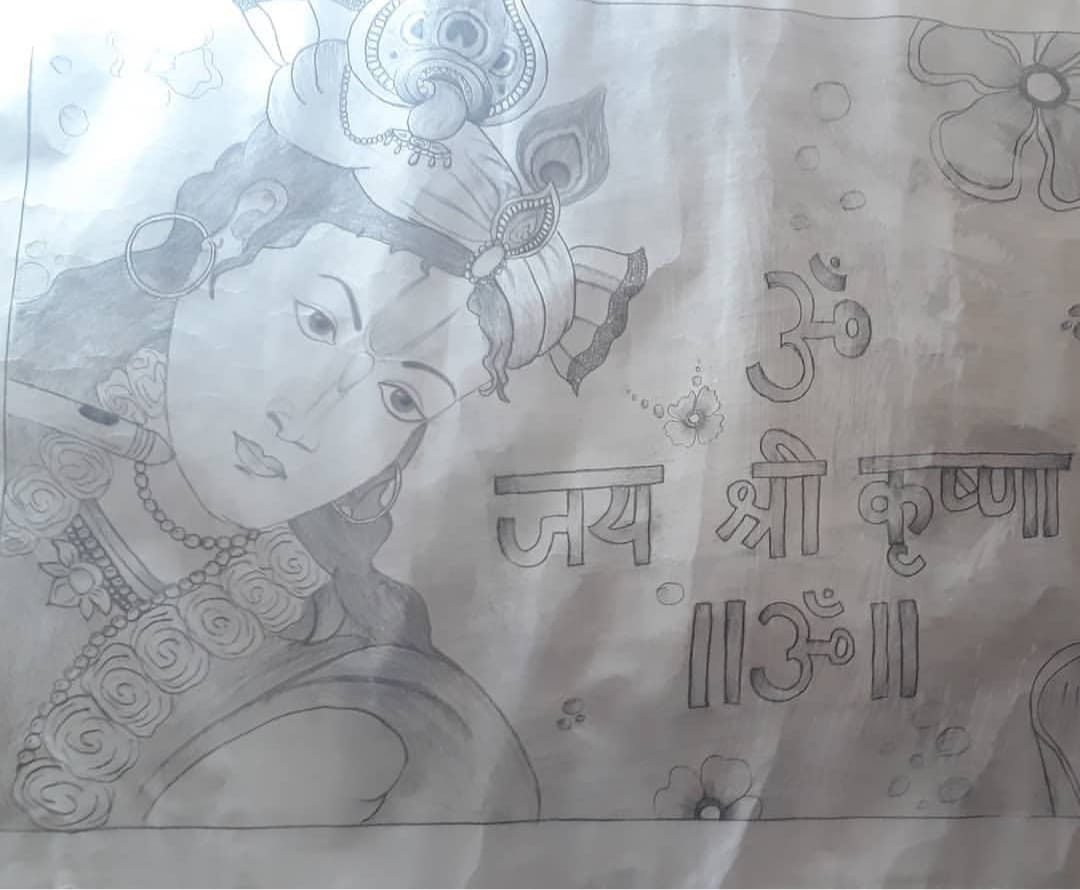 ॐ
जय श्री कृष्णा
॥ॐ॥